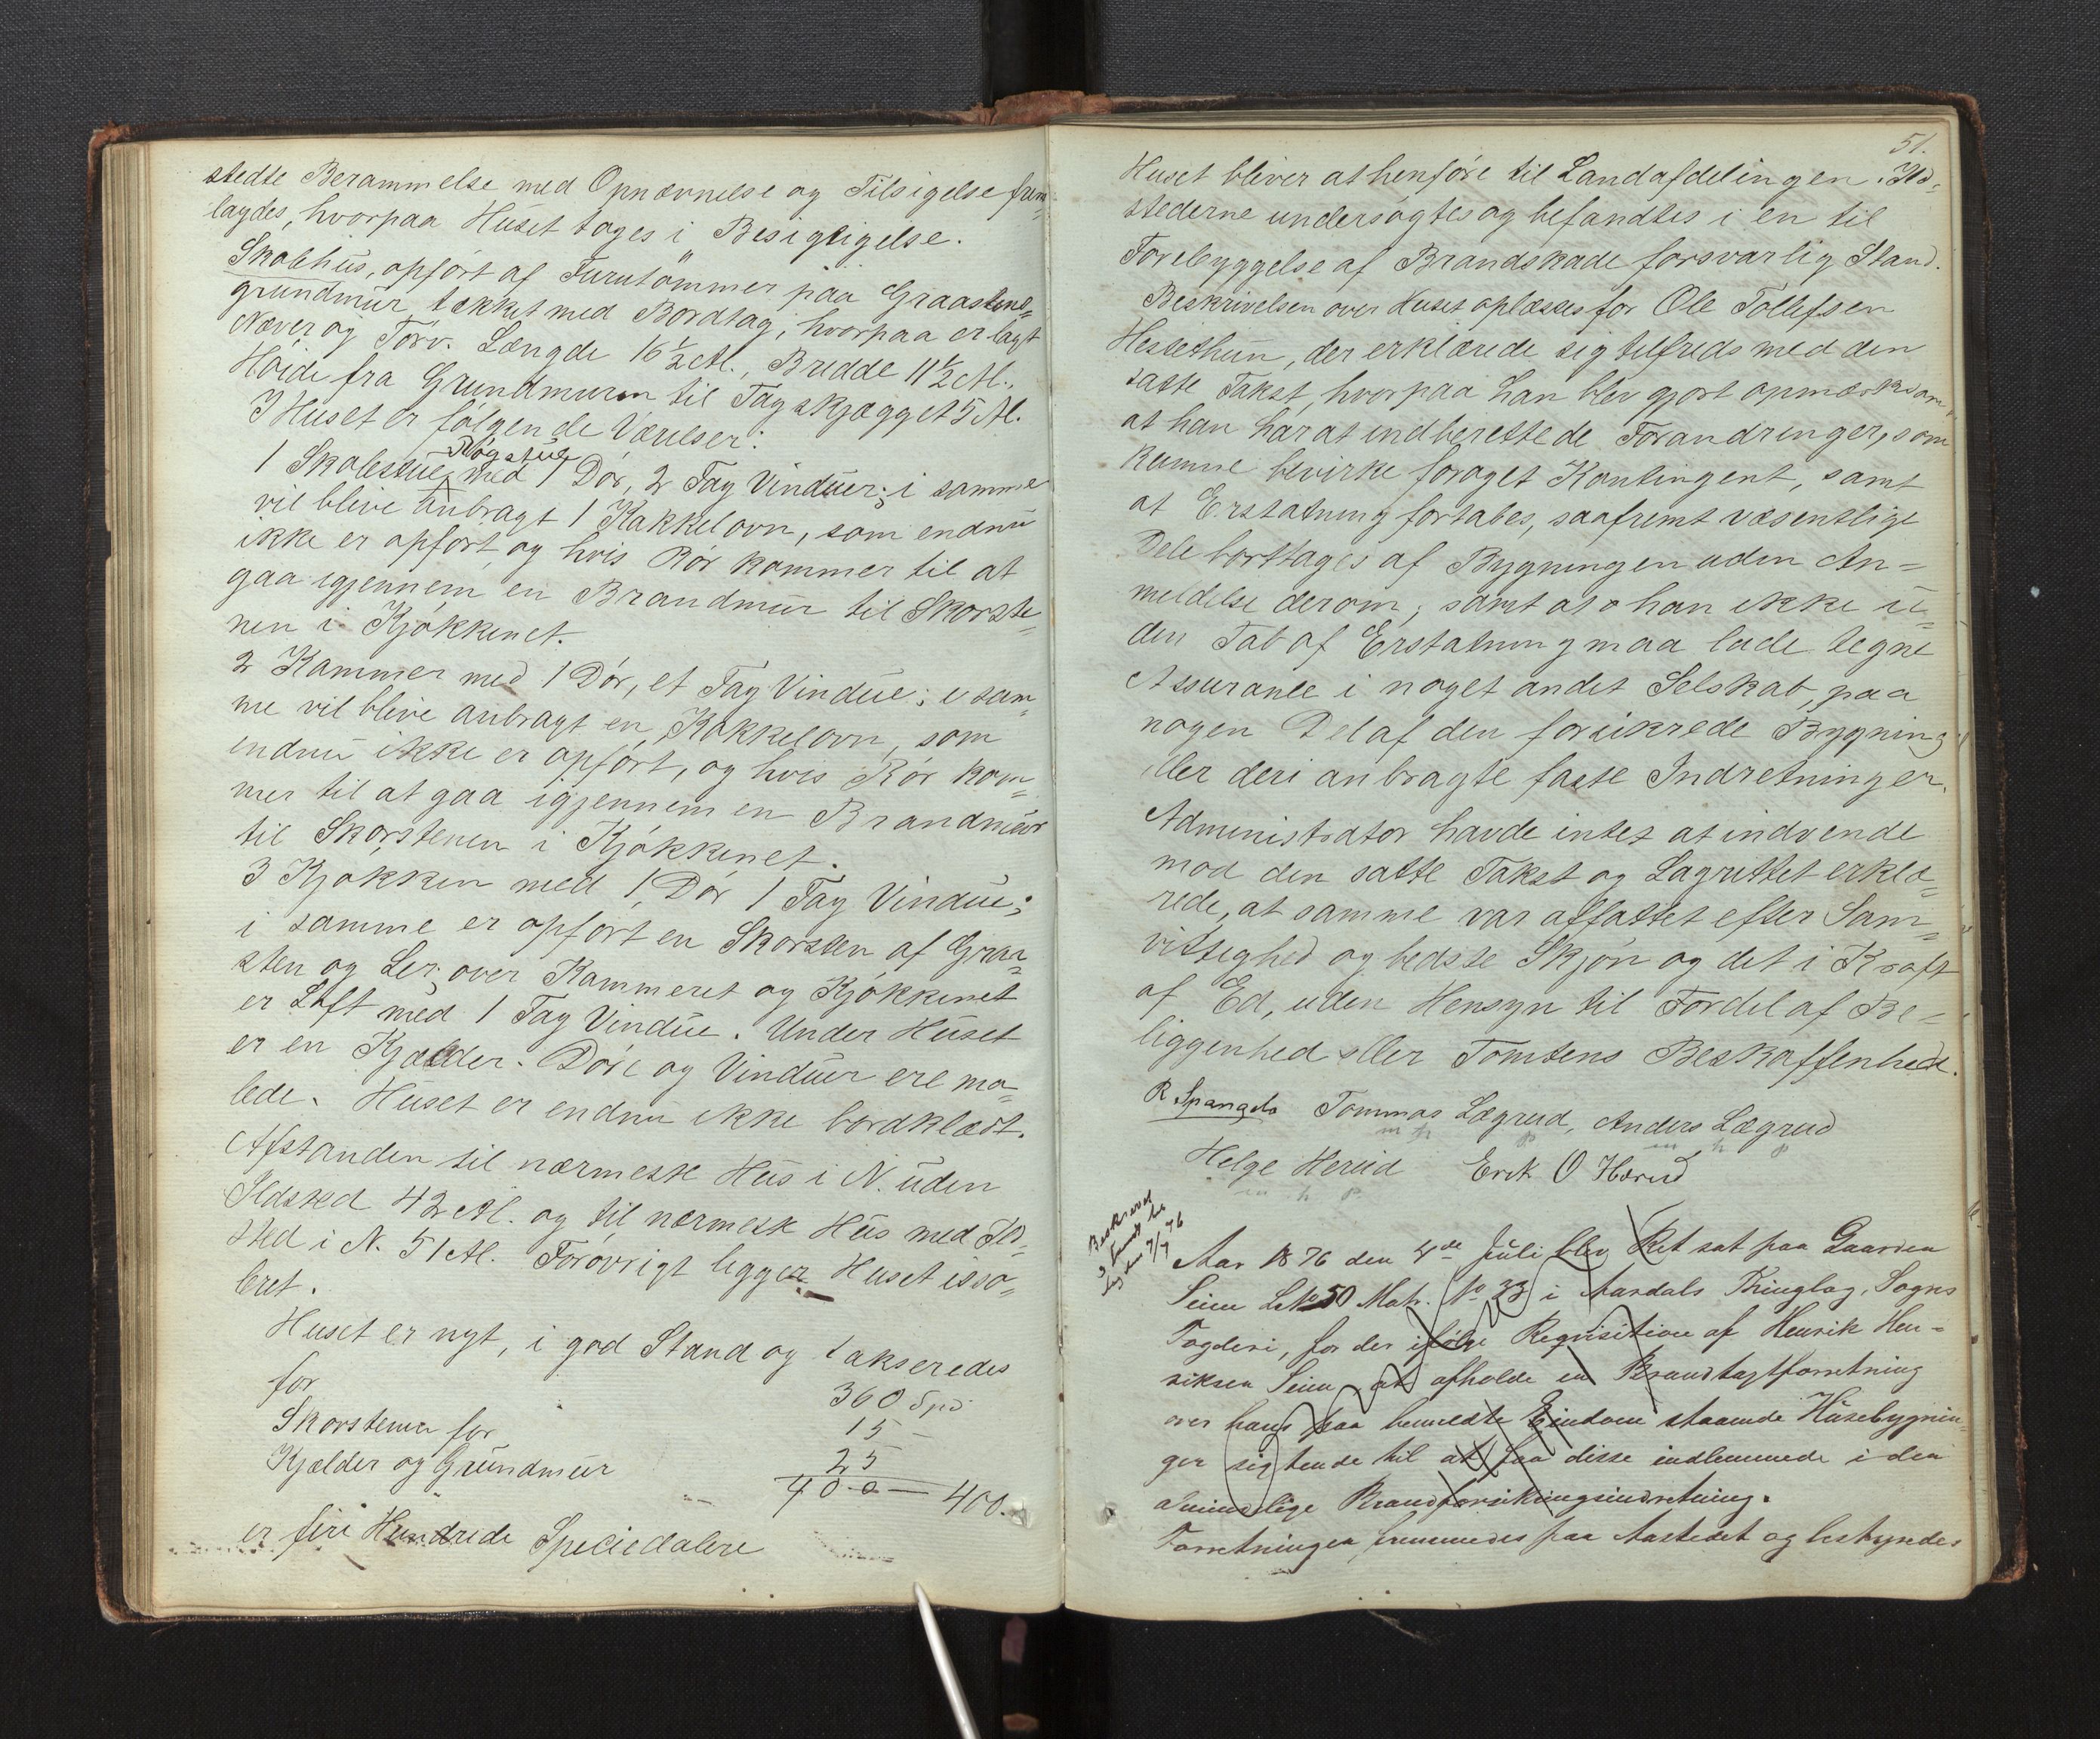 stedte Berammelse med Opnævnelse og Tilsigelse frem=
lagdes, hvorpaa Huset toges i Besigtigelse.
Skolehus, opført af Furutømmer paa Graastens=
grundmur tækket med Bordtag, hvorpaa er lagt
Næver og Torv. Længde 16 1/2 Al., Bredde 11 1/2 Al.,
Høide fra Grundmuren til Tagskjægget 5 Al.
I Huset er følgende Værelser:
Røgstue
1 Skolestue med 1 Dør, 2 Fag Vinduer; i samme
vil blive anbragt 1 Kakkelovn, som endnu
ikke er opført, og hvis Rør kommer til at
gaa igjennem en Brandmur til Skorste=
nen i Kjøkkenet.
2 Kammer med 1 Dør, et Fag Vindue; i sam=
me vil blive anbragt en Kakkelovn, som
endnu ikke er opført, og hvis Rør kom=
mer til at gaa igjennem en Brandmur
til Skorstenen i Kjøkkenet.
3 Kjøkken med 1 Dør 1 Fag Vindue;
i samme er opført en Skorsten af Graa=
sten og Ler; over Kammeret og Kjøkkenet
er Loft med 1 Fag Vindue. Under Huset
er en Kjælder. Døre og Vinduer ere ma=
lede. Huset er endnu ikke bordklædt.
Afstanden til nærmeste Hus i N. uden
Ildsted 42 Al. og til nærmeste Hus med Ild=
sted i N. 51 Al. Forøvrigt ligger Huset isso=
leret.
Huset er nyt, i god Stand og takseredes
for 360 Spd.
Skorstenen for 15 –
Kjælder og Grundmur 25
400 — 400.
er fire Hundrede Speciedalere
51.
Huset bliver at henføre til Landafdelingen. Ild=
stederne undersøgtes og befandtes i en til
Forebyggelse af Brandskade forsvarlig Stand.
Beskrivelsen over Huset oplæstes for Ole Tollefsen
Hestethun, der erklærede sig tilfreds med den
satte Takst, hvorpaa han blev gjort opmærksom
at han har at indberette de Forandringer, som
kunne bevirke forøget Kontingent, samt
at Erstatning fortabes, saafremt væsentlige
Dele borttages af Bygningen uden An=
meldelse derom, samt at han ikke u=
den Tab af Erstatning maa lade tegne
Assurance i noget andet Selskab, paa
nogen Del af den forsikrede Bygning
eller deri anbragte faste Indretninger.
Administrator havde intet at indvende
mod den satte Takst og Lagrettet erklæ=
rede, at samme var affattet efter Sam=
vittighed og bedste Skjøn og det i Kraft
af Ed, uden Hensyn til Fordel af Be=
liggenhed eller Tomtens Beskaffenhed.
R. Spangelo Tommas Lægrud, Anders Lægrud
m p m h p
Helge Herud Erik O Hærud
m h P
Beskrevet
7/7 76
Aar 1876 den 4de Juli blev Ret sat paa Gaarden
Seim L.No 50 Matr. No 33 i Aardals Thinglag, Sogns
Fogderi, for der ifølge Requisition af Henrik Hen=
riksen Seim at afholde en Brandtaxtforretning
over hans paa bemeldte Eindom staaende Husebygnin=
ger sigtende til at faa disse indlemmede i den
almindelige Brandforsikringsindretning.
Forretningen fremmedes paa Aastedet og bestyredes